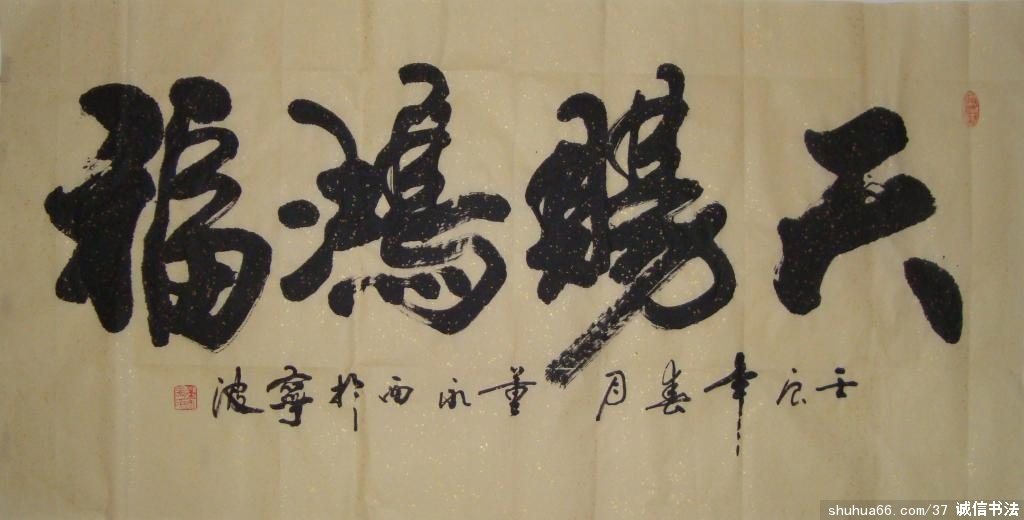 天赐鸿福
壬辰年春月 董永西於寧波
shuhua66.com/37 诚信书法